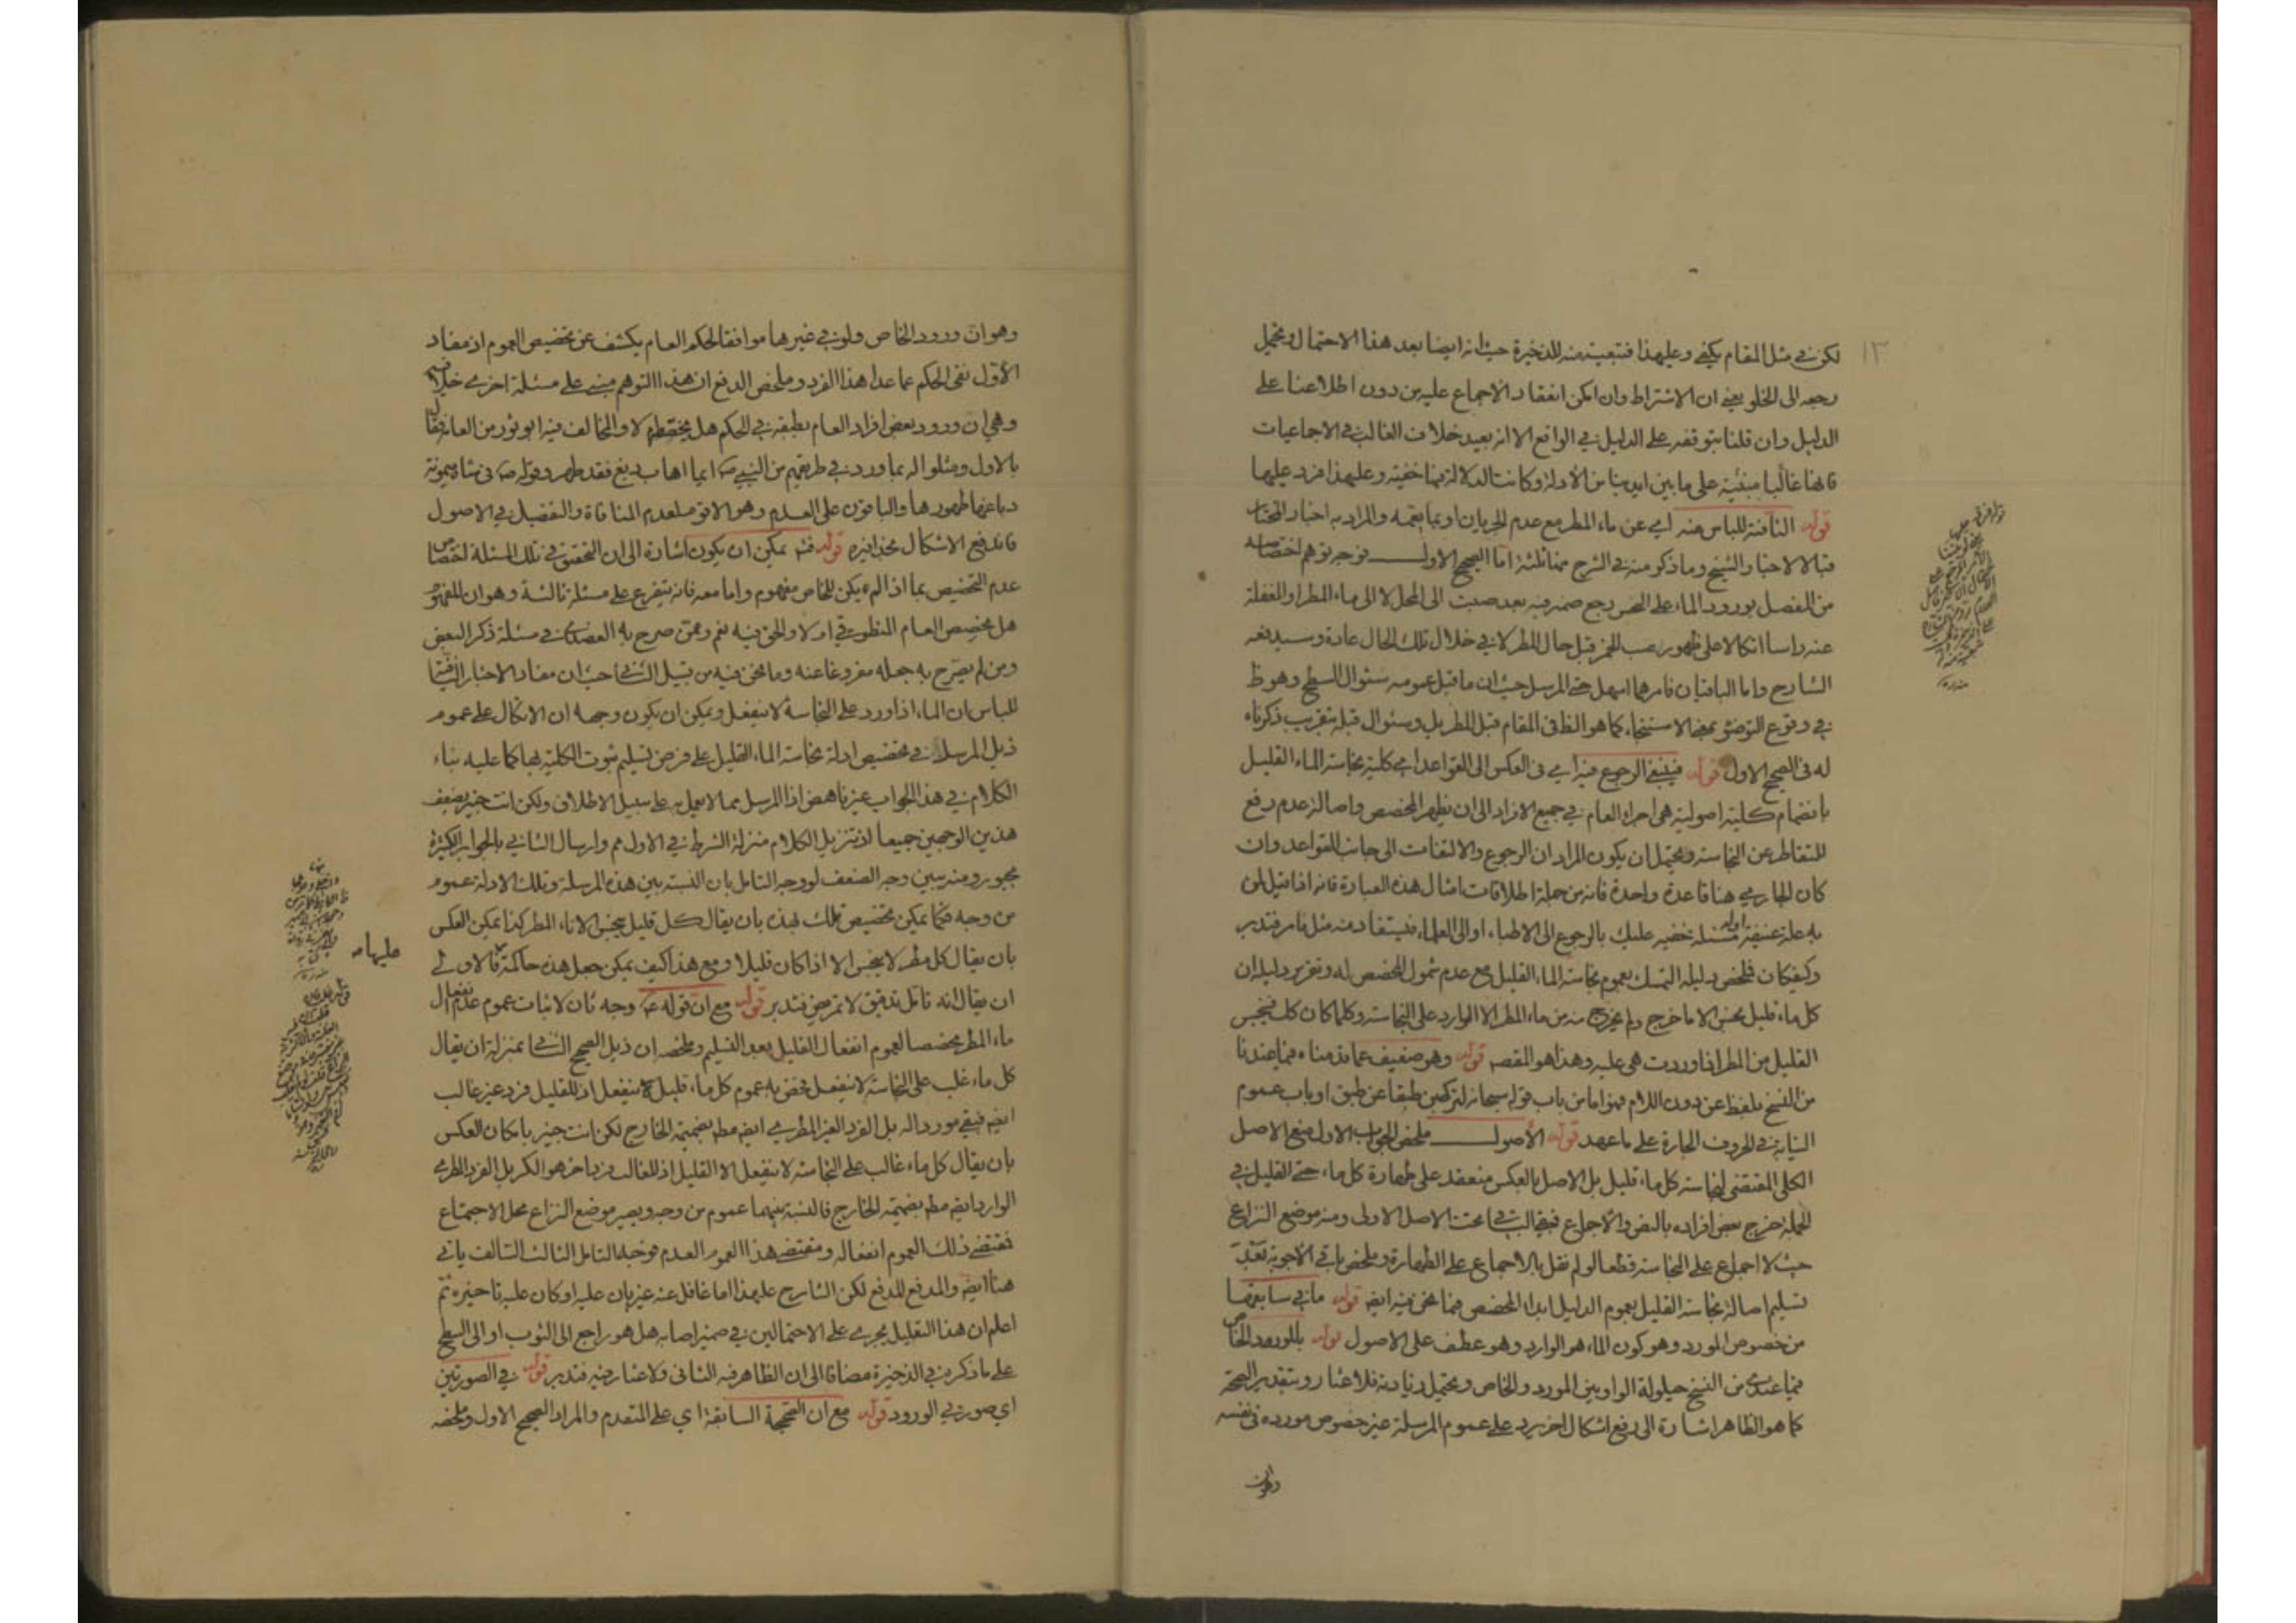 ١٣
لكن في مثل المقام يكفي وعليهذا فتبعيته منه للذخيرة حيث انه ايضا بعد هذا الاحتمال ويحتمل
رجعه الى الخلو يعني ان الاشتراط وان امكن انعقاد الاجماع عليه من دون اطلاعنا على
الدليل وان قلنا بتوقفه على الدليل في الواقع الا انه بعيد خلاف الغالب في الاجماعيات
فانها غالبا مبتنية على ما بين ايدينا من الادلة وكانت الدلالة فيها خفية وعليهذا فرد عليها
قوله النافية للباس منه اي عن ماء المطر مع عدم الجريان او بما يعمه والمراد به اخبار المختار
قبالا لاخبار الشيخ وما ذكر منه في الشرح هنا ثلثة اما الصحيح الاول فوجه توهم اختصاصه
من الفصل بورود الماء على النجس رجع ضمير فيه بعد صبت الى المحل لا الى ماء المطر او الغفلة
عنه راسا اتكالا على ظهور صب الخمر قبل حال المطر لا في خلال تلك الحال عادة وسيدفعه
الشارح واما الباقيان فامرهما اسهل حتى المرسل حيث ان ما قبل عمومه سئوال السطح وهو ظ
في وقوع التوضؤ بمعنى الاستنجاء كما هو الظ في المقام قبل المطر بل وسئوال قبله بتقريب ذكرناه
له في الصحيح الاول قوله فينبغي الرجوع فيه اي في العكس الى القواعد اي كلية نجاسة الماء القليل
بانضمام كلية اصولية هي اجراء العام في جميع الافراد الى ان يظهر المخصص واصالة عدم رفع
المتقاطر عن النجاسة ويحتمل ان يكون المراد ان الرجوع والالتفات الى جانب القواعد وان
كان الجاري هنا قاعدة واحدة فانه من جملة اطلاقات امثال هذه العبارة فانه اذا قيل لمن
به علة عنيفة او له مسئلة خفيه عليك بالرجوع الى الاطباء او الى العلماء فيستفاد منه مثل ما مر فتدبر
وكيفكان فملخص دليله التمسك بعموم نجاسة الماء القليل مع عدم شمول المخصص له وتقرير دليله ان
كل ماء قليل نجس الا ما خرج ولم يخرج منه من ماء المطر الا الوارد على النجاسة وكلما كان كك فينجس
القليل من المطر اذا وردت هي عليه وهذا هو المقصد قوله وهو ضعيف عما قدمناه فيما عندنا
من النسخ بلفظ عن دون اللام فهو اما من باب قوله سبحانه لتركبن طبقا عن طبق او باب عموم
النيابة في الحروف الجارة على ما عهد قوله الاصول ملخص الجواب الاول منع الاصل
الكلي المقتضي لنجاسة كل ماء قليل بل الاصل بالعكس منعقد على طهارة كل ماء حتى القليل في
الجملة خرج بعض افراده بالنص والاجماع فبقي الباقي تحت الاصل الاولى ومنه موضع النزاع
حيث لا اجماع على النجاسة قطعا لو لم نقل بالاجماع على الطهارة وملخص باقي الاجوبة بعد
تسليم اصالة نجاسة القليل بعموم الدليل ابداء المخصص فيما نحن فيه ايضا قوله ما في سابقهما
من خصوص المورد وهو كون الماء هو الوارد وهو عطف على الاصول قوله بالمورود الخاص
فيما عندي من النسخ حيلولة الواو بين المورد والخاص ويحتمل زيادته فلا غبار وبتقدير الصحة
كما هو الظاهر اشارة الى رفع اشكال اخر يرد على عموم المرسلة غير خصوص مورده في نفسه
وهوان
وهو ان ورود الخاص ولو في غيرها موافقا لحكم العام يكشف عن تخصيص العموم اذ مفاد
الاول نفى الحكم عما عدا هذا الفرد وملخص الدفع ان هذا التوهم مبني على مسئلة اخرى خلافية
وهي ان ورود بعض افراد العام بطبقه في الحكم هل يخصصه ام لا والمخالف فيه ابو ثور من العامة فقال
بالاول ومثلوا له بما ورد في طريقهم من النبي ص ايما اهاب دبغ فقد طهر وقوله ص في شاة ميمونة
دباغها طهورها والباقون على العدم وهو الاقوى لعدم المنافاة والتفصيل في الاصول
فاندفع الاشكال بحذافيره قوله فتم يمكن ان يكون اشارة الى ان التحقيق في تلك المسئلة اختصاص
عدم التخصيص بما اذا لم يكن للخاص مفهوم واما معه فانه يتفرع على مسئلة ثالثة وهو ان المفهوم
هل يخصص العام المنطوقي ام لا والحق فيه نعم وممن صرح به العضدي في مسئلة ذكر البعض
ومن لم يصرح به جعله مفروغا عنه وما نحن فيه من قبيل الثاني حيث ان مفاد الاخبار النافية
للباس ان الماء اذا ورد على النجاسة لا ينفعل ويمكن ان يكون وجهه ان الاتكال على عموم
ذيل المرسلة في تخصيص ادلة نجاسة الماء القليل على فرض تسليم ثبوت الكلية بها كما عليه بناء
الكلام في هذا الجواب غير ناهض اذا المرسل مما لا يعمل به على سبيل الاطلاق ولكن انت خبير بضعف
هذين الوجهين جميعا اذ تنزيل الكلام منزلة الشرط في الاول مم وارسال الثاني بالجوابر الكثيرة
مجبور ومنه يبين وجه الضعف لو وجه التامل بان النسبة بين هذه المرسلة وتلك الادلة عموم
من وجه فكما يمكن تخصيص تلك بهذه بان يقال كل قليل ينجس الا ماء المطر كذا يمكن العكس
بان يقال كل مطر لا ينجس الا اذا كان قليلا ومع هذا كيف يمكن جعل هذه حاكمة عليها فالاولى
ان يقال انه تامل تدقيق لا تمريض فتدبر قوله مع ان قوله ع وجه ثان لاثبات عموم عدم انفعال
ماء المطر مخصصا لعموم انفعال القليل بعد التسليم وملخصه ان ذيل الصحيح الثاني بمنزلة ان يقال
كل ماء غلب على النجاسة لا ينفعل فخص به عموم كل ماء قليل ينفعل اذ للقليل فرد غير غالب
ايضا فيبقى موردا له بل الفرد الغير المطري ايضا مط بضميمة الخارج لكن انت خبير بامكان العكس
بان يقال كل ماء غالب على النجاسة لا ينفعل الا القليل اذ للغالب فرد اخر هو الكر بل الفرد المطري
الوارد ايضا مط بضميمة الخارج فالنسبة بينهما عموم من وجه ويصير موضع النزاع محل الاجتماع
فمقتضى ذلك العموم انفعاله ومقتضى هذا العموم العدم فوجه التامل الثالث السالف ياتي
هنا ايضا والمدفع المدفع لكن الشارح عليهذا اما غافل عنه غير بان عليه او كان عليه تاخيره ثم
اعلم ان هذا التقليل يجري على الاحتمالين في ضمير اصابه هل هو راجع الى الثوب او الى السطح
على ما ذكر في الذخيرة مضافا الى ان الظاهر فيه الثاني ولا غبار فيه فتدبر قوله في الصورتين
اي صورتي الورود قوله مع ان الصحيحة السابقة اي على المتقدم والمراد الصحيح الاول وملخصه
عليها مه